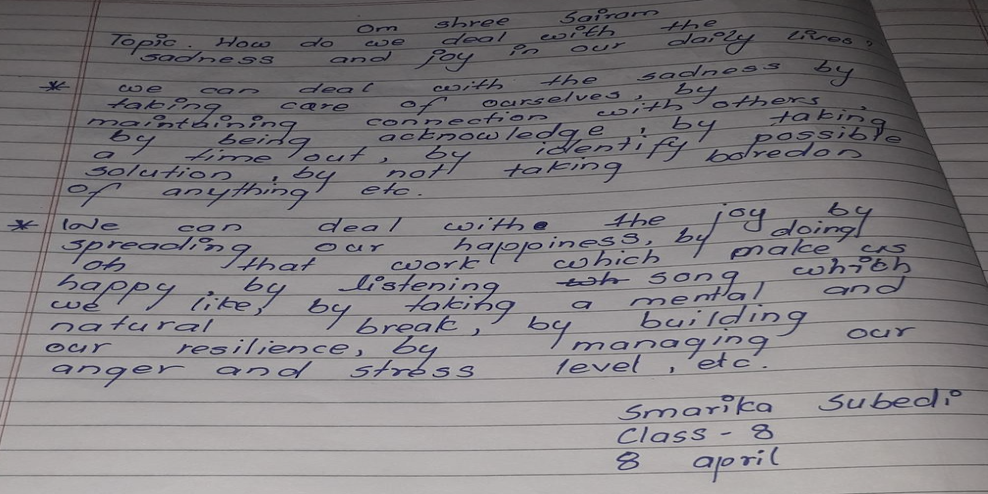 Om shree Sairam
Topic. How do we deal with the
sadness and joy in our daily lives,
* we can deal with the sadness by
taking care of ourselves, by
maintaining connection with others,
by being acknowledge, by taking
a time out, by identify possible
solution, by not taking
of anything etc.
* We can deal with the joy by
spreading our happiness, by doing
that work which make us
happy, by listening song which
we like, by taking a mental and
natural break, by building
our resilience, by managing our
anger and stress level, etc.
Smarika Subedi
Class - 8
8 april